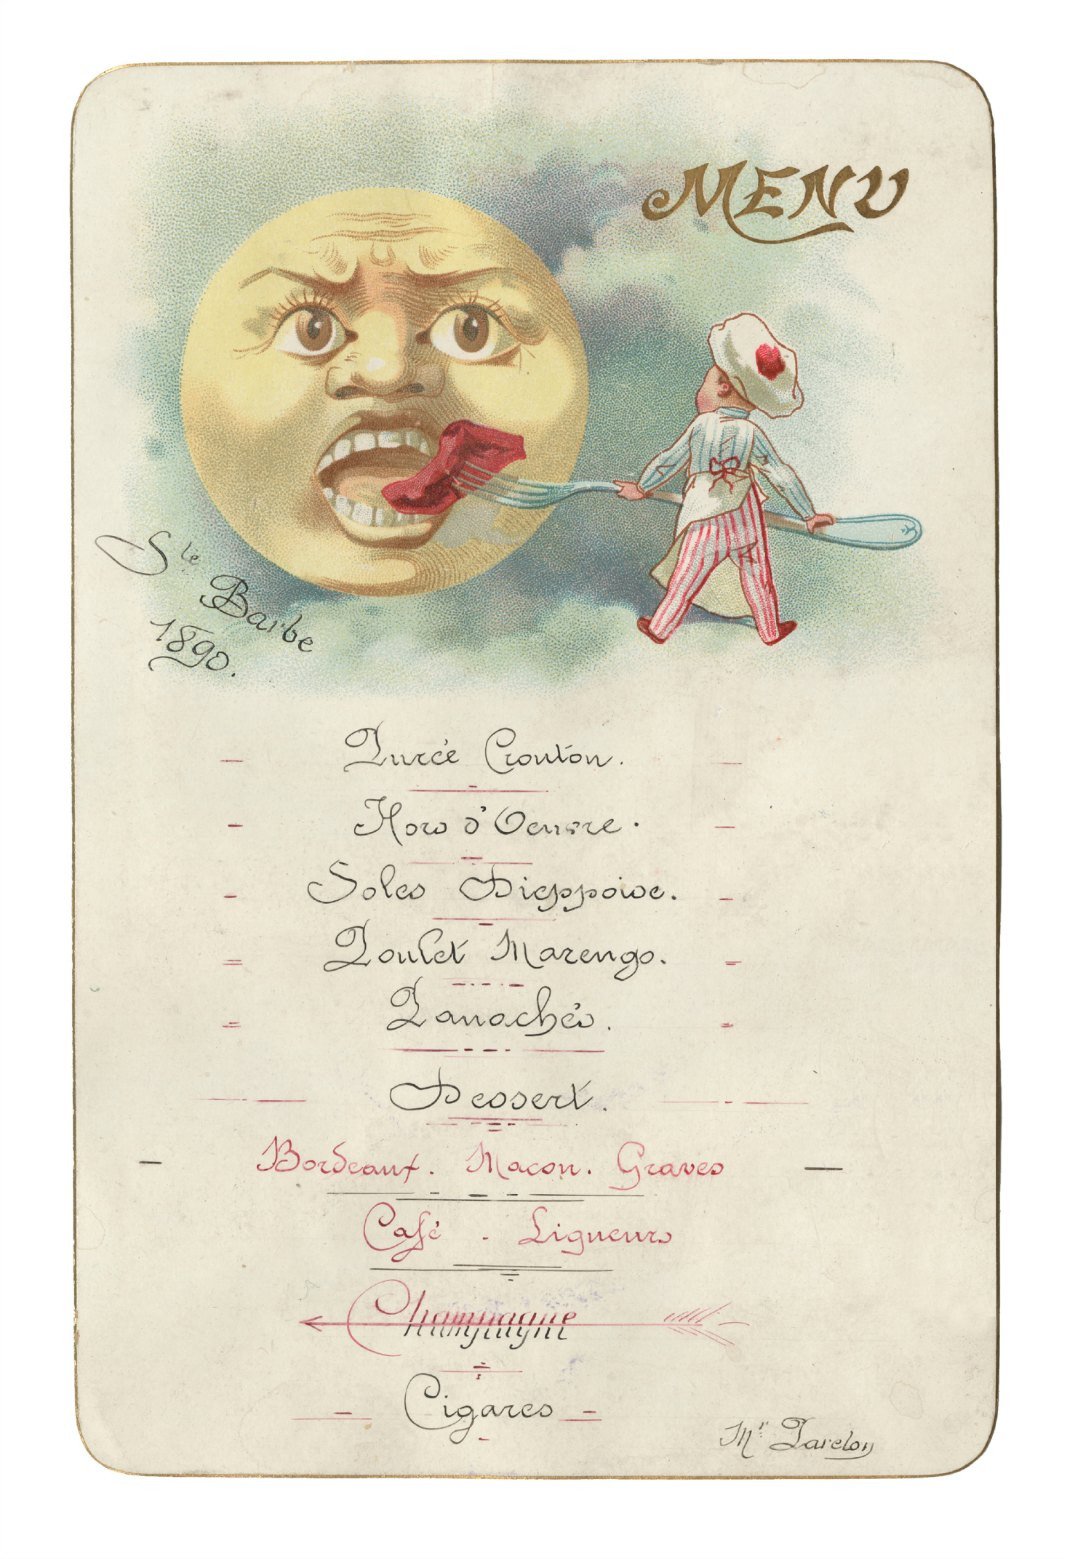 MENU
Ste Barbe
1890.
Purée Crouton.
Hors d'Oeuvre.
Soles Dieppoise.
Poulet Marengo.
Panachés.
Dessert.
Bordeaux. Macon. Graves
Café - Liqueurs
Champagne
Cigares
Mr Parelon